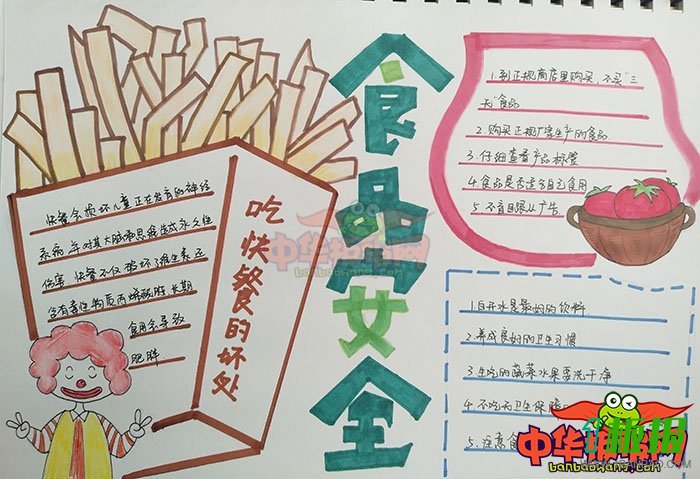 食品安全
吃快餐的坏处
快餐会损坏儿童正在发育的神经
系统
对其大脑和思维造成永久性
伤害 快餐不仅破坏了维生素还
含有毒性物质丙烯酰胺长期
食用会导致
肥胖
1.到正规商店里购买,不买"三
无"食品
2.购买正规厂家生产的食品
3.仔细查看产品标签
4.食品是否适合自己食用
5.不盲目随从广告
1.白开水是最好的饮料
2.养成良好的卫生习惯
3.生吃的蔬菜水果要洗干净
4.不吃无卫生保障
5.注意食
中华报报网
banbaowang.com
中华报报网
banbaowang.com